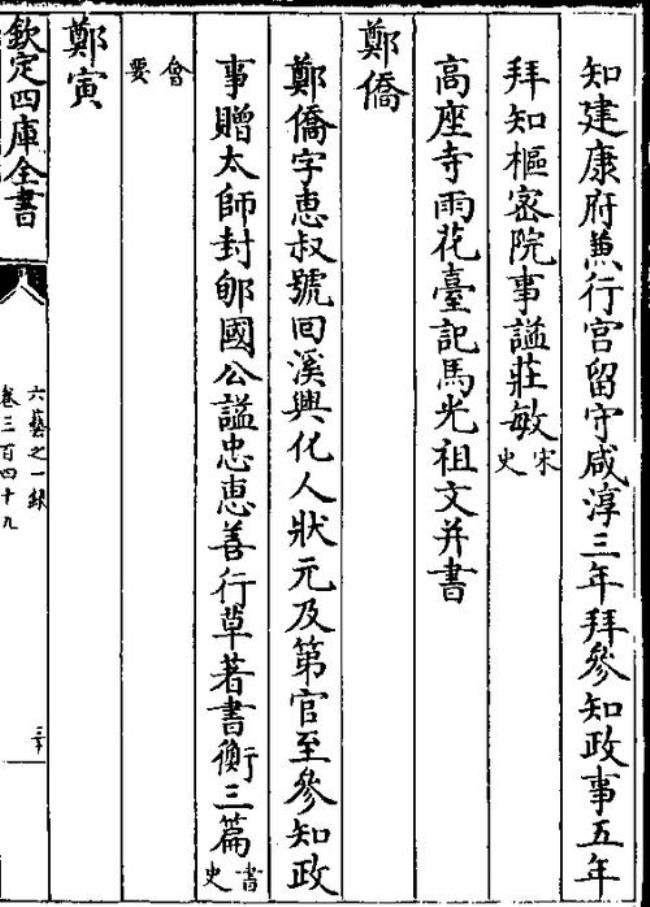 知建康府兼行宫留守咸淳三年拜參知政事五年
拜知樞密院事謚莊敏宋史
高座寺雨花臺記馬光祖文并書
鄭僑
鄭僑字惠叔號回溪興化人狀元及第官至參知政
事贈太師封郇國公謚忠惠善行草著書衡三篇書史
會要
鄭寅
欽定四庫全書
六藝之一錄
卷三百四十九
三十